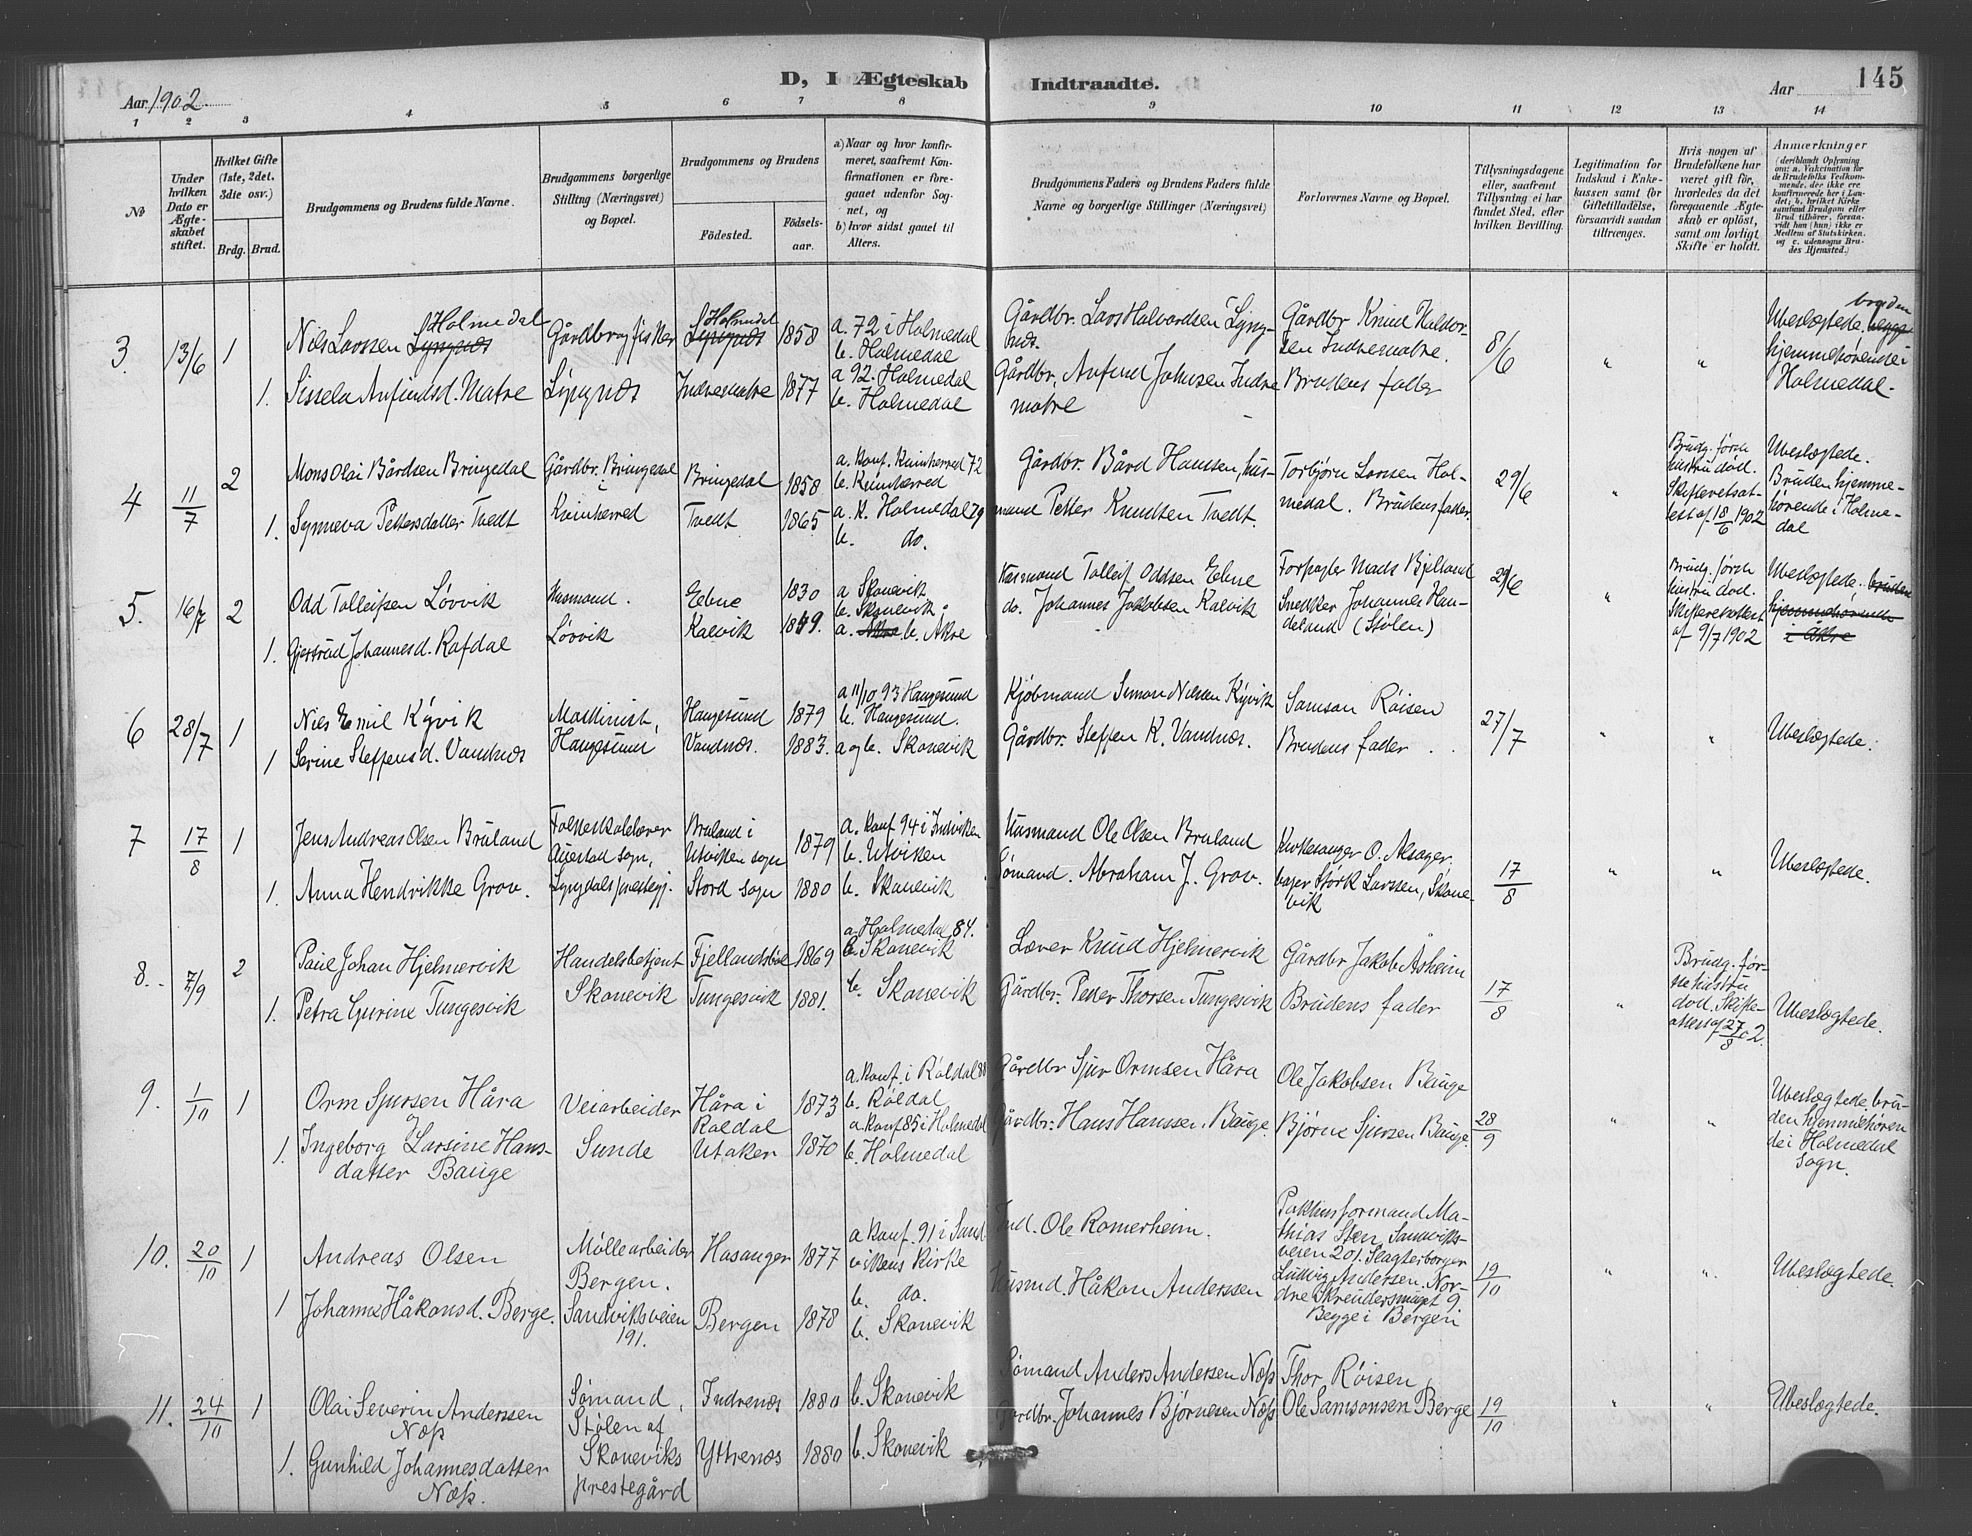 D, I Ægteskab Indtraadte.
145
Aar 1902
Aar
1 2 3 4 5 6 7 8 9 10 11 12 13 14
No
Under hvilken Dato er Ægteskabet stiftet.
Hvilket Gifte (1ste, 2det, 3die osv.)
Brdg. Brud.
Brudgommens og Brudens fulde Navne.
Brudgommens borgerlige Stilling (Næringsvei) og Bopæl.
Brudgommens og Brudens
Födested.
Födselsaar.
a) Naar og hvor konfirmeret, saafremt Konfirmationen er foregaaet udenfor Sognet, og
b) hvor sidst gaaet til Alters.
Brudgommens Faders og Brudens Faders fulde Navne og borgerlige Stillinger (Næringsvei)
Forlovernes Navne og Bopæl.
Tillysningsdagene eller, saafremt Tillysning ei har fundet Sted, efter hvilken Bevilling.
Legitimation for Indskud i Enkekassen samt for Giftetilladelse, forsaavidt saadan tiltrænges.
Hvis nogen af Brudefolkene har været gift för, hvorledes da det foregaaende Ægteskab er oplöst, samt om lovligt Skifte er holdt.
Anmærkninger
(deriblandt Oplysning om: a. Vakcination for de Brudefolks Vedkommende, der ikke ere konfirmerede her i Landet; b. hvilket Kirkesamfund Brudgom eller Brud tilhörer, forsaavidt han (hun) ikke er Medlem af Statskirken, og c. udensogns Brudes Hjemsted.)
3. 13/6 1 Nils Larssen Lyngnæs Holmedal Gårdbr og fisker Lyngnæs Holmedal 1858 a. 72 i Holmedal b. Holmedal Gårdbr. Lars Halvardsen Lyngnæs. Gårdbr Knud Haldorsen Indrematre. 8/6 " " Ubeslægtede. begge bruden hjemmehørende i Holmedal.
1. Sissela Anfinds d. Matre Lyngnæs Indrematre 1877 a 92. Holmedal b. Holmedal Gårdbr. Anfind Johnsen Indre matre Brudens fader
4 11/7 2 Mons Olai Bårdsen Bringedal Gårdbr. Bringedal i Bringedal 1858 a. Konf. Kvinherred 72 b. Kvinherred Gårdbr. Bård Hansen, hus- Torbjørn Larssen Holmedal. Brudens fader. 29/6 " Brudg. første hustru død. Skifteretsattest af 18/6 1902 Ubeslægtede. Bruden hjemmehørende i Holmedal
1. Synneva Pettersdatter Tvedt Kvinherred Tvedt 1865 a. K. Holmedal 79 b. do. mand Petter Knudsen Tvedt.
5. 16/7 2 Odd Tolleifsen Løvvik Husmand. Ebne 1830 a Skonevik b. Skonevik Husmand Tolleif Oddsen Ebne Forpagter Mads Bjelland 29/6 " Brudg. første hustru død. Skifteretsattest af 9/7 1902 Ubeslægtede. bruden hjemmehørende i Åkre
1. Gjertrud Johannesd. Rafdal Løvvik Kalvik 1849. a. Åkre b. Åkre do. Johannes Jakobsen Kalvik Snedker Johannes Handeland (Stølen)
6 28/7 1 Nils Emil Kyvik Maskinist, Haugesund 1879 a 11/10 93 Haugesund b. Haugesund. Kjøbmand Simon Nilsen Kyvik Samson Røisen 27/7 " " Ubeslægtede.
1 Serine Steffens d. Vandnæs Haugesund Vandnæs. 1883. a og b. Skonevik Gårdbr. Steffen K. Vandnæs. Brudens fader
7 17/8 1 Jens Andreas Olsen Bruland Folkeskolelærer Bruland i Utviken sogn 1879 a. Konf 94 i Indviken b. Utviken Husmand Ole Olsen Bruland Kirkesanger O. Aksager. 17/8 " " Ubeslægtede.
1. Anna Hendrikke Grov. Austad sogn, Lyngdals prestegj. Stord sogn 1880 b. Skonevik Sømand. Abraham J. Grov. bager Størk Larssen, Skonevik
8. 7/9 2 Paul Johan Hjelmervik Handelsbetjent Fjellandsbøe 1869 a. Holmedal 84. b. Skonevik Lærer Knud Hjelmervik Gårdbr Jakob Åsheim 17/8 " Brudg. første hustru død. Skifteattest af 27/8 02. Ubeslægtede.
1. Petra Gurine Tungesvik Skonevik Tungesvik 1881. b. Skonevik Gårdbr. Peder Thorsen Tungesvik Brudens fader
9. 1/10 1 Orm Sjursen Håra Veiarbeider Håra i Roldal 1873 a. Konf. i Røldal 88 b. Røldal Gårdbr Sjur Ormsen Håra Ole Jakobsen Bauge 28/9 " " Ubeslægtede bruden hjemmehørende i Holmedal Sogn.
1. Ingeborg Larsine Hansdatter Bauge Sunde Utaker 1870 a Konf 85 i Holmedal b. Holmedal Gårdbr. Hans Hanssen. Bauge. Bjørne Sjursen Bauge.
10. 20/10 1 Andreas Olsen Møllearbeider Bergen. Hosanger 1877 a Konf. 91 i Sandvikens Kirke b. do. Ind. Ole Romerheim. Pakhusformand Mathias Steen, Sandviksveien 201. Slagterborger Ludvig Andersen, Nordre Skreudersmuget 9. Begge i Bergen 19/10 " " Ubeslægtede.
1 Johanna Håkonsd. Berge. Sandviksveien 191. Bergen 1878 b. Skonevik Husmd Håkon Anderssen
11. 24/10 1 Olai Severin Anderssen Næss Sømand, Indrenæs 1880 b. Skonevik Sømand Anders Andersen Næss Thor. Røisen 19/10 " " Ubeslægtede.
1. Gunhild Johannesdatter Næss. Stølen af Skoneviks prestegård Yttrenæs 1880 b. Skonevik Gårdbr. Johannes Bjørnesen Næss Ole Samsonsen Berge